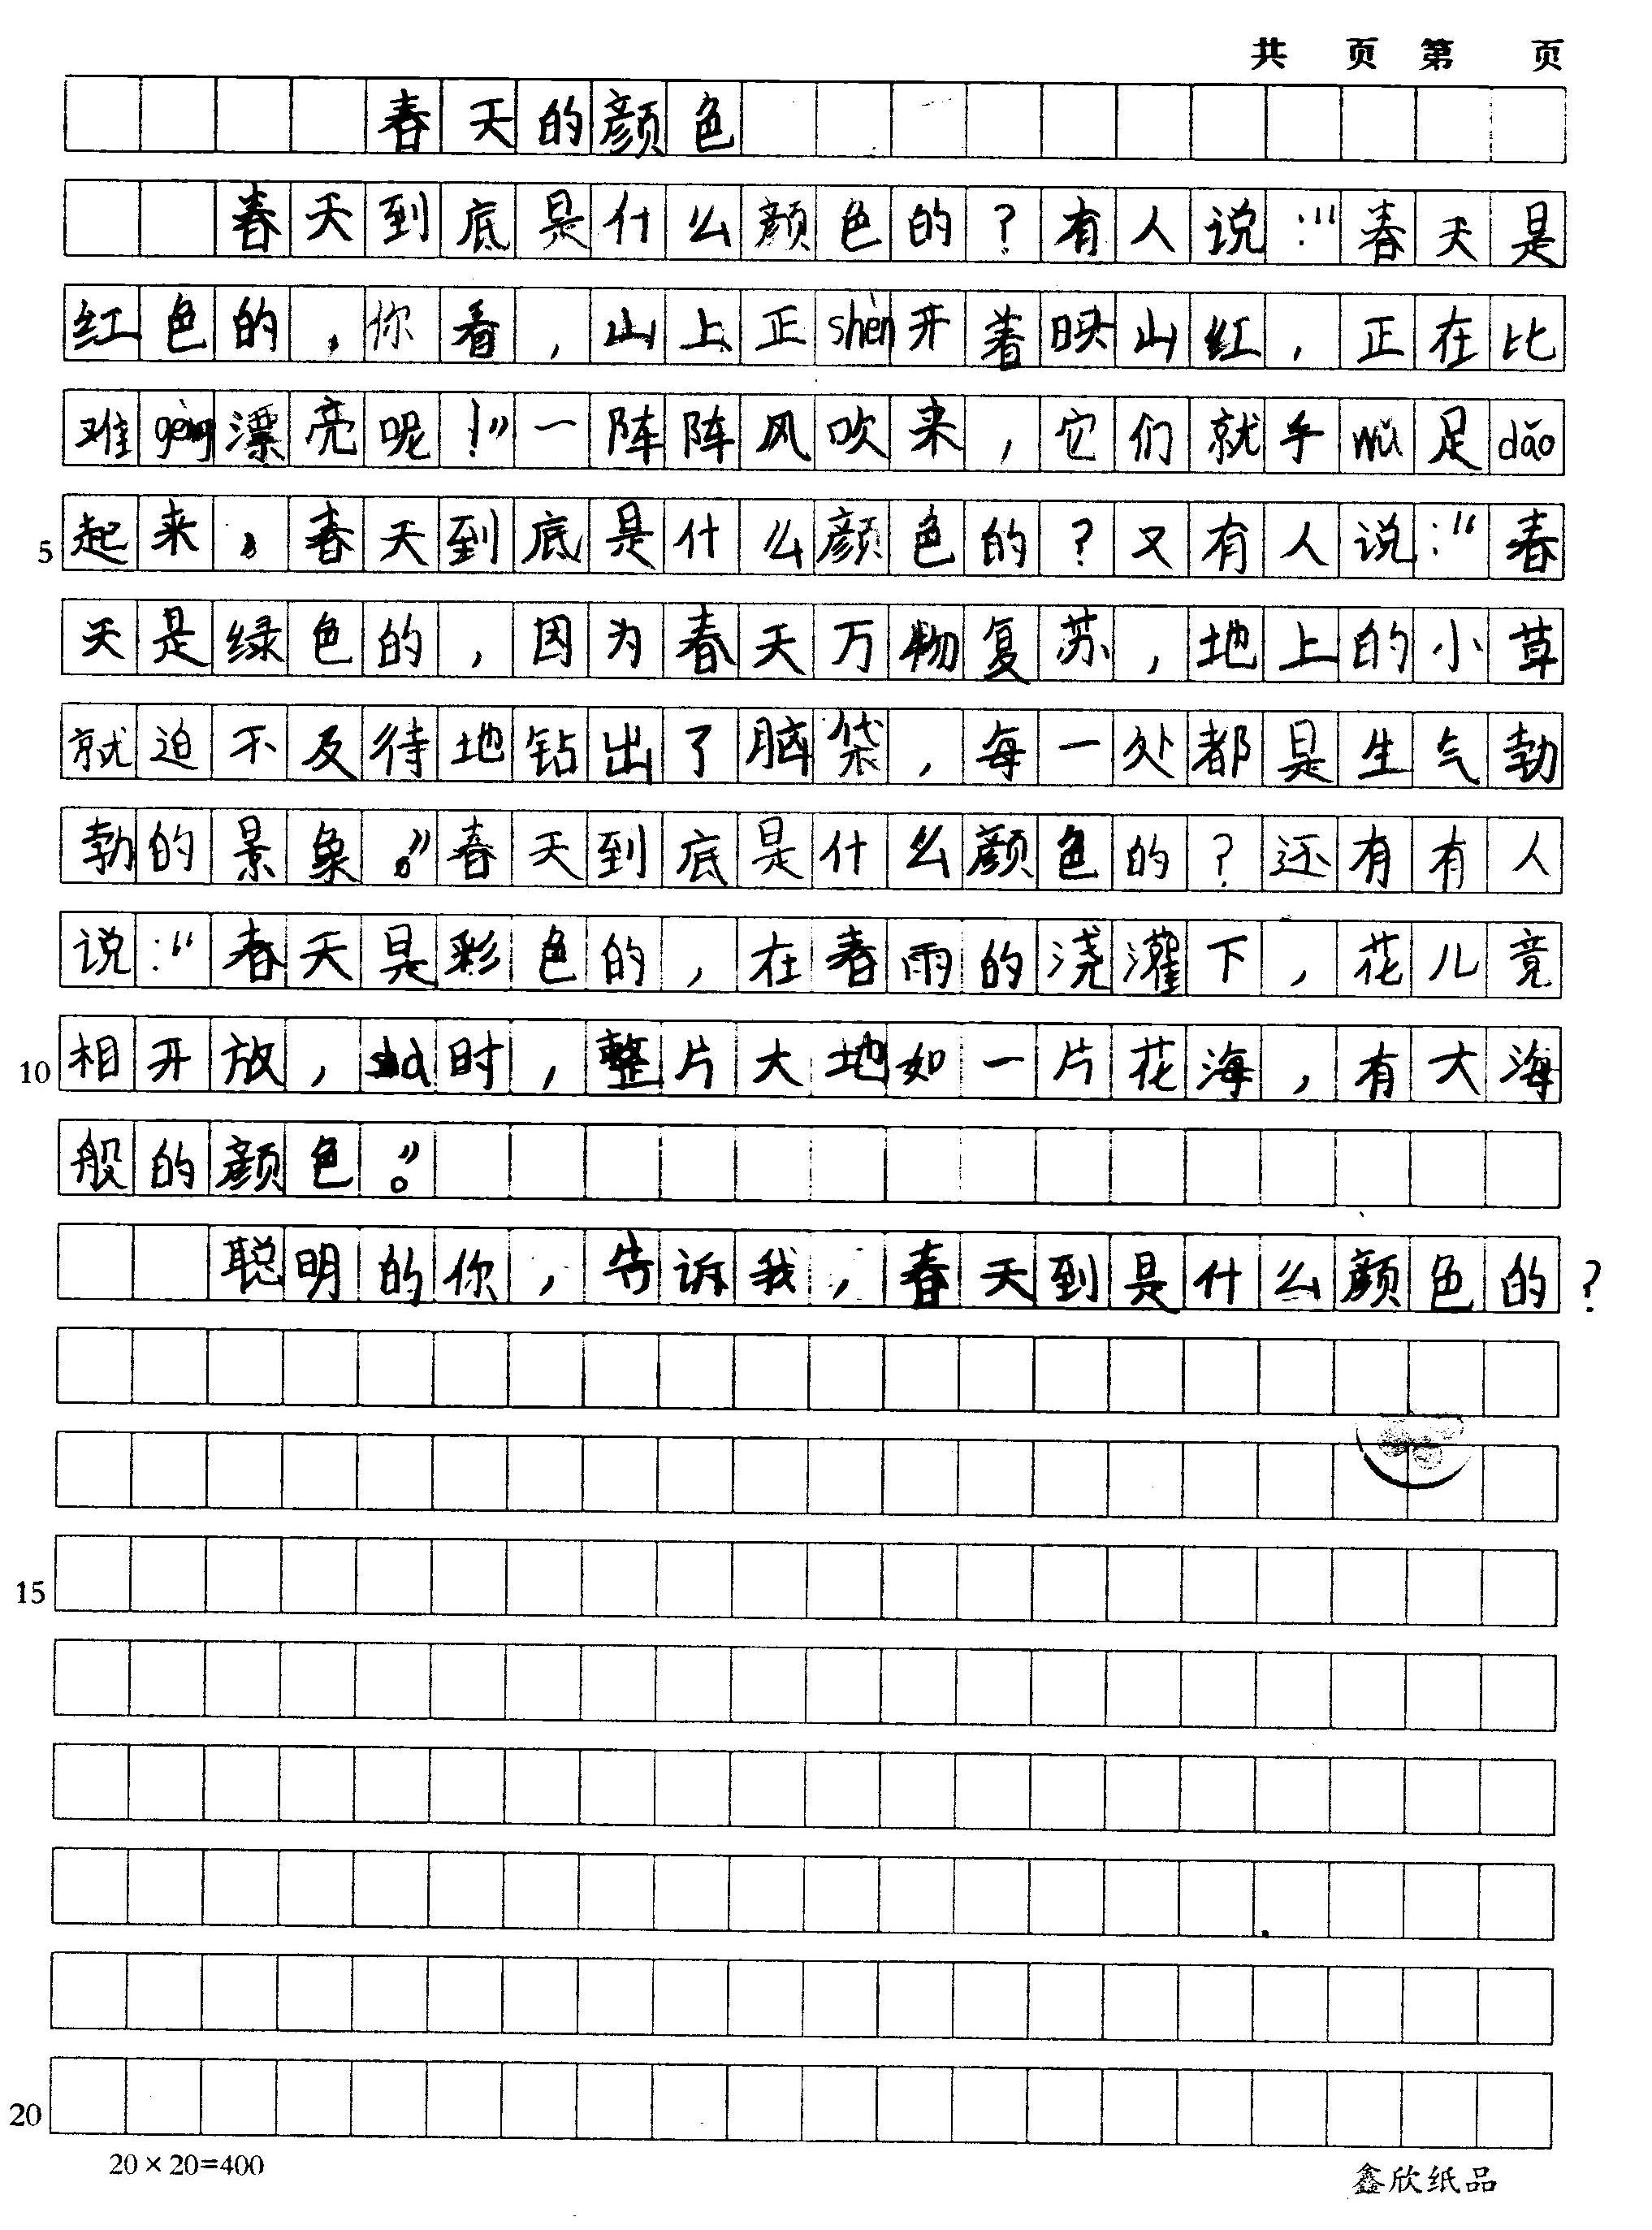 共 页 第 页
春天的颜色
春天到底是什么颜色的？有人说：“春天是
红色的，你看，山上正shèn开着映山红，正在比
难gèng漂亮呢！”一阵阵风吹来，它们就手wǔ足dǎo
5 起来。春天到底是什么颜色的？又有人说：“春
天是绿色的，因为春天万物复苏，地上的小草
就迫不及待地钻出了脑袋，每一处都是生气勃
勃的景象。”春天到底是什么颜色的？还有有人
说：“春天是彩色的，在春雨的浇灌下，花儿竟
10 相开放，时，整片大地如一片花海，有大海
般的颜色。”
聪明的你，告诉我，春天到是什么颜色的？
15
20
20×20=400 鑫欣纸品